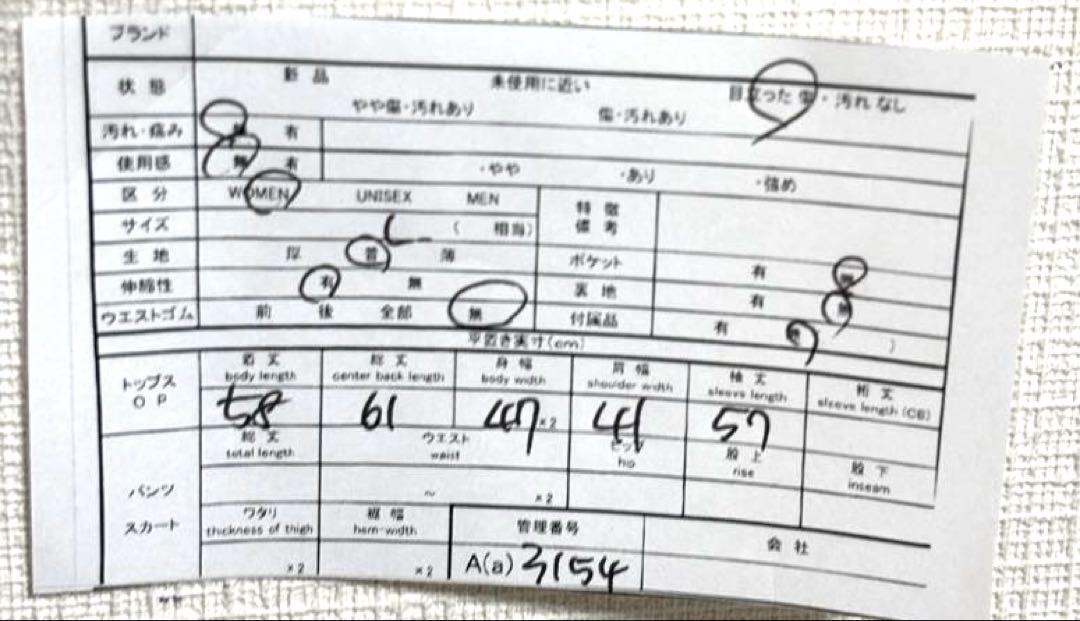 ブランド
状態 新品 未使用に近い 目立った傷・汚れなし
やや傷・汚れあり 傷・汚れあり
汚れ・痛み 無 有
使用感 無 有 ・やや ・あり ・強め
区分 WOMEN UNISEX MEN 特徴
備考
サイズ L ( 相当)
生地 厚 普 薄 ポケット 有 無
伸縮性 有 無 裏地 有 無
ウエストゴム 前 後 全部 無 付属品 有 無 )
平置き実寸(cm)
トップス
OP
着丈 総丈 身幅 肩幅 袖丈 裄丈
body length center back length body width shoulder width sleeve length sleeve length (CB)
58 61 47 ×2 41 57
総丈 ウエスト ヒップ 股上 股下
total length waist hip rise inseam
パンツ ～ ×2
スカート ワタリ 裾幅 管理番号 会社
thickness of thigh hem-width
×2 ×2 A(a) 3154